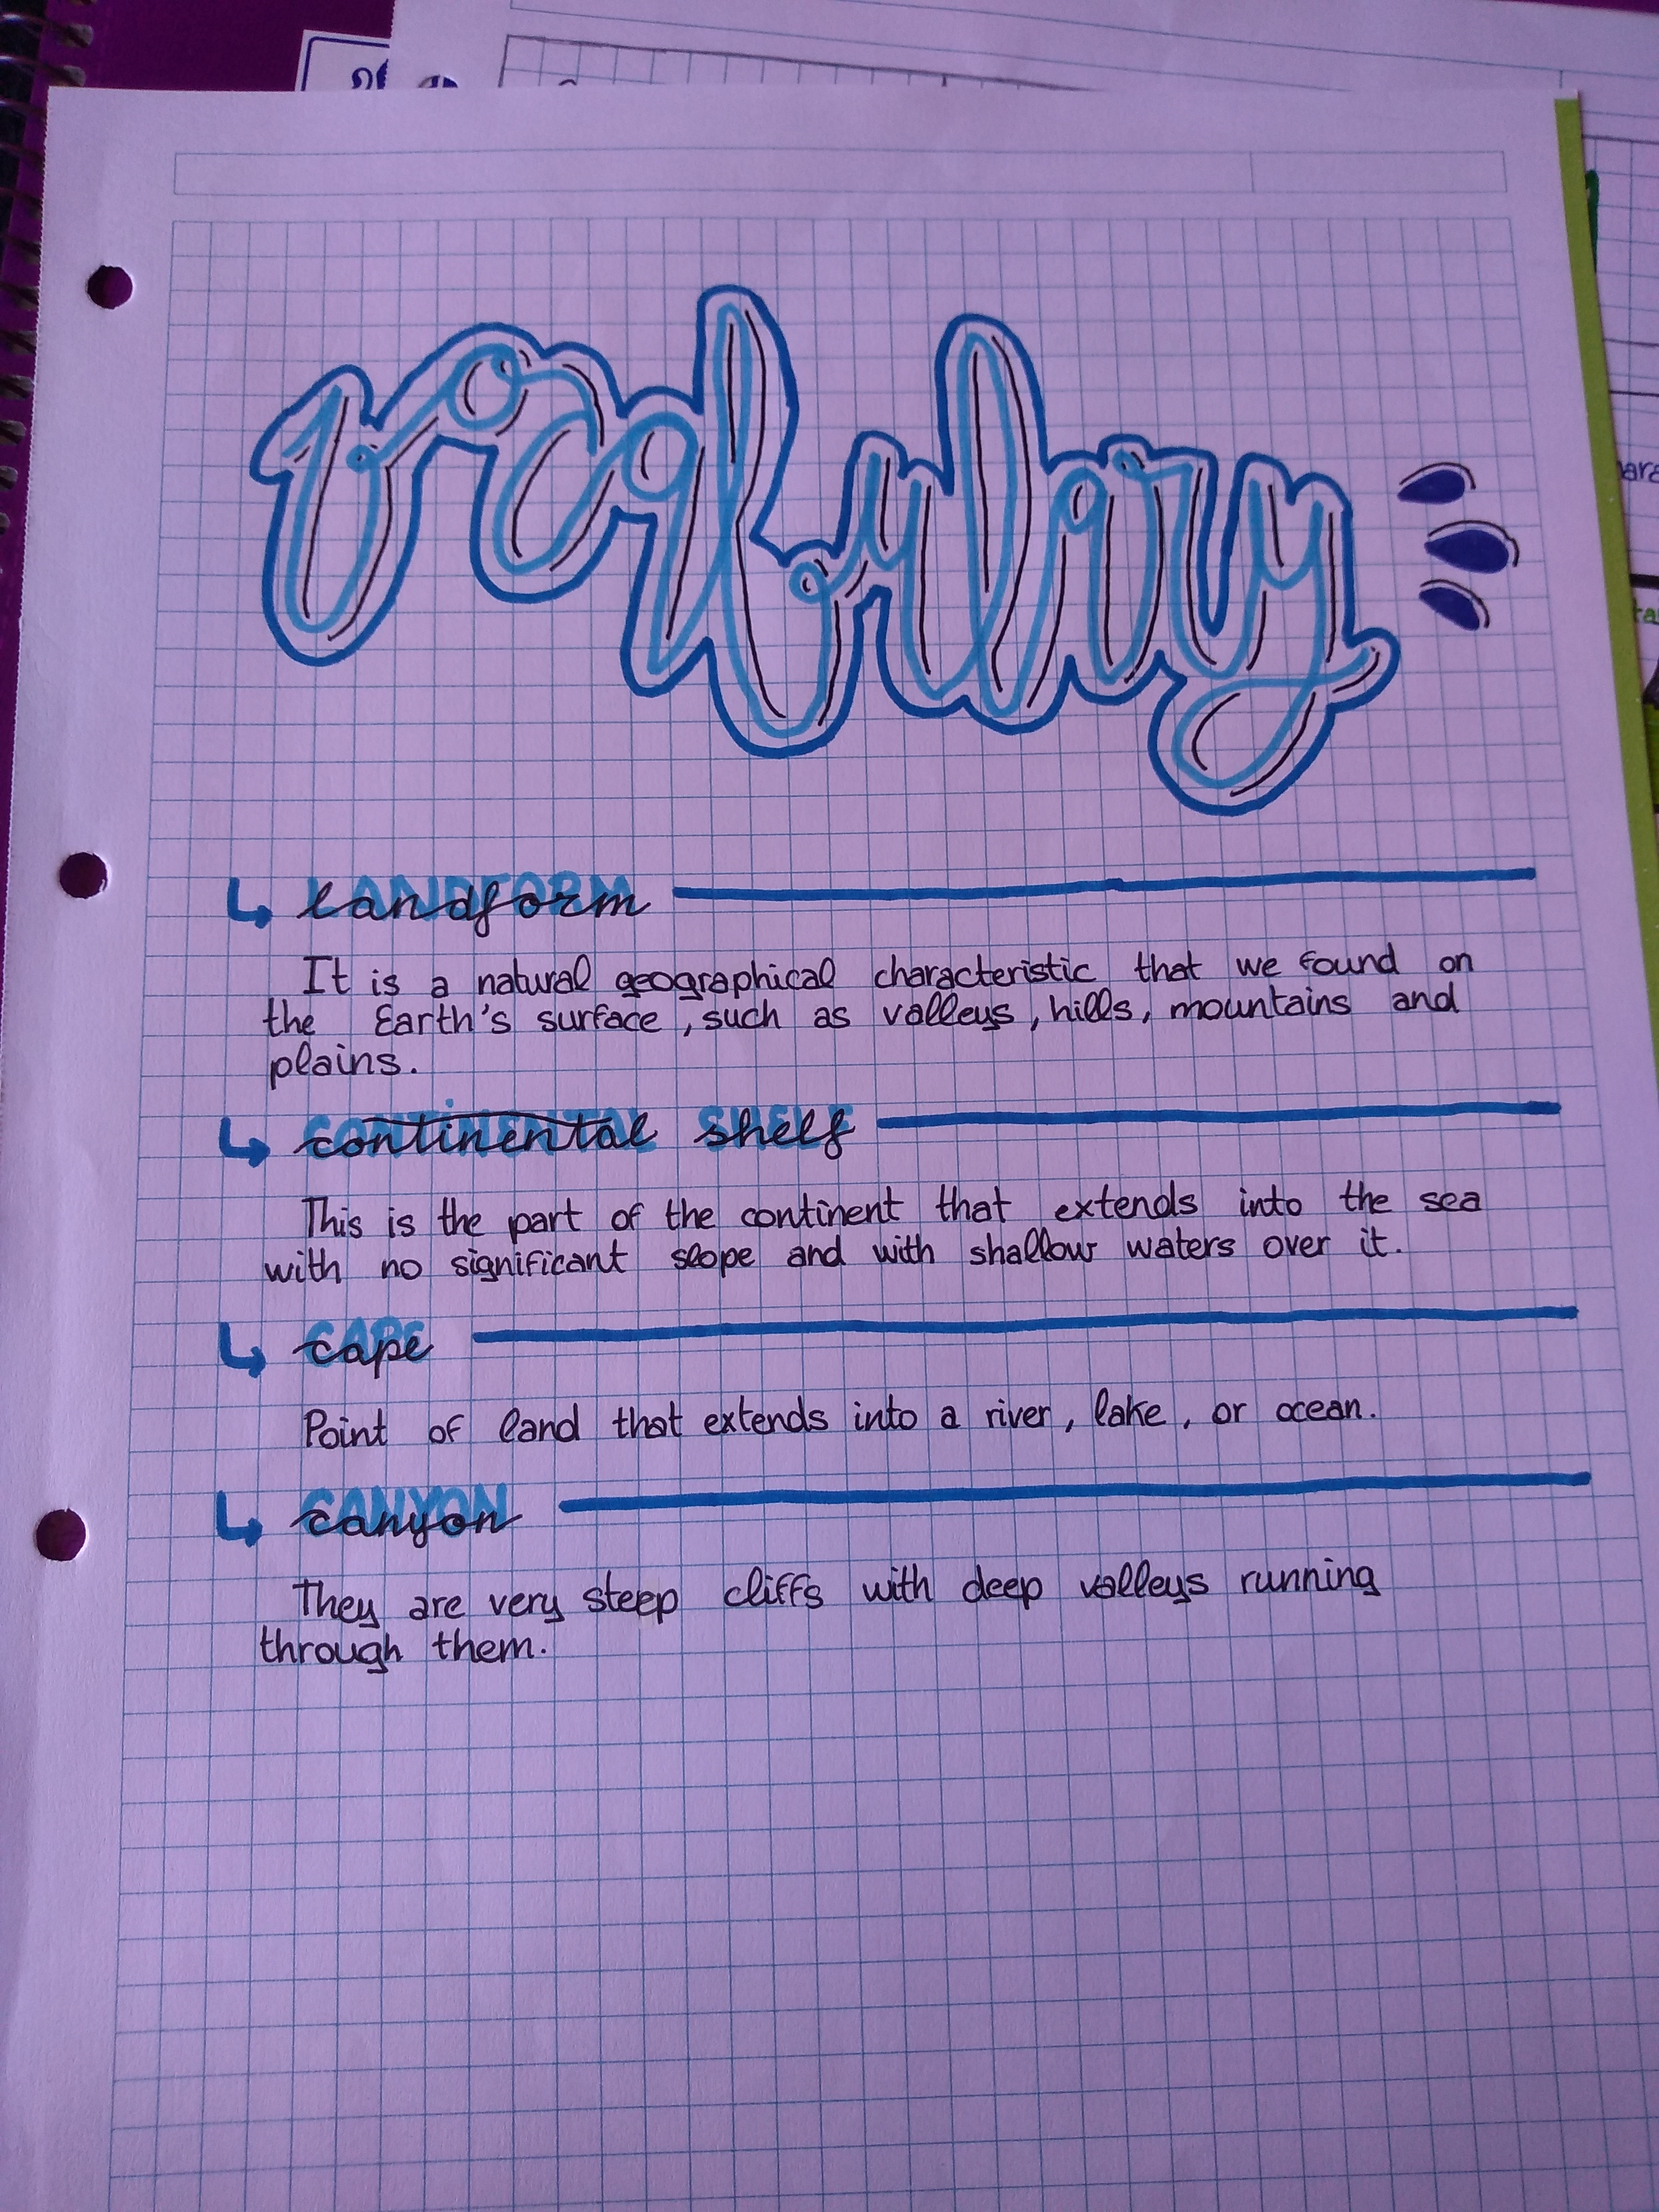 vocabulary
landform
It is a natural geographical characteristic that we found on
the Earth's surface, such as valleys, hills, mountains and
plains.
continental shelf
This is the part of the continent that extends into the sea
with no significant slope and with shallow waters over it.
cape
Point of land that extends into a river, lake, or ocean.
canyon
They are very steep cliffs with deep valleys running
through them.